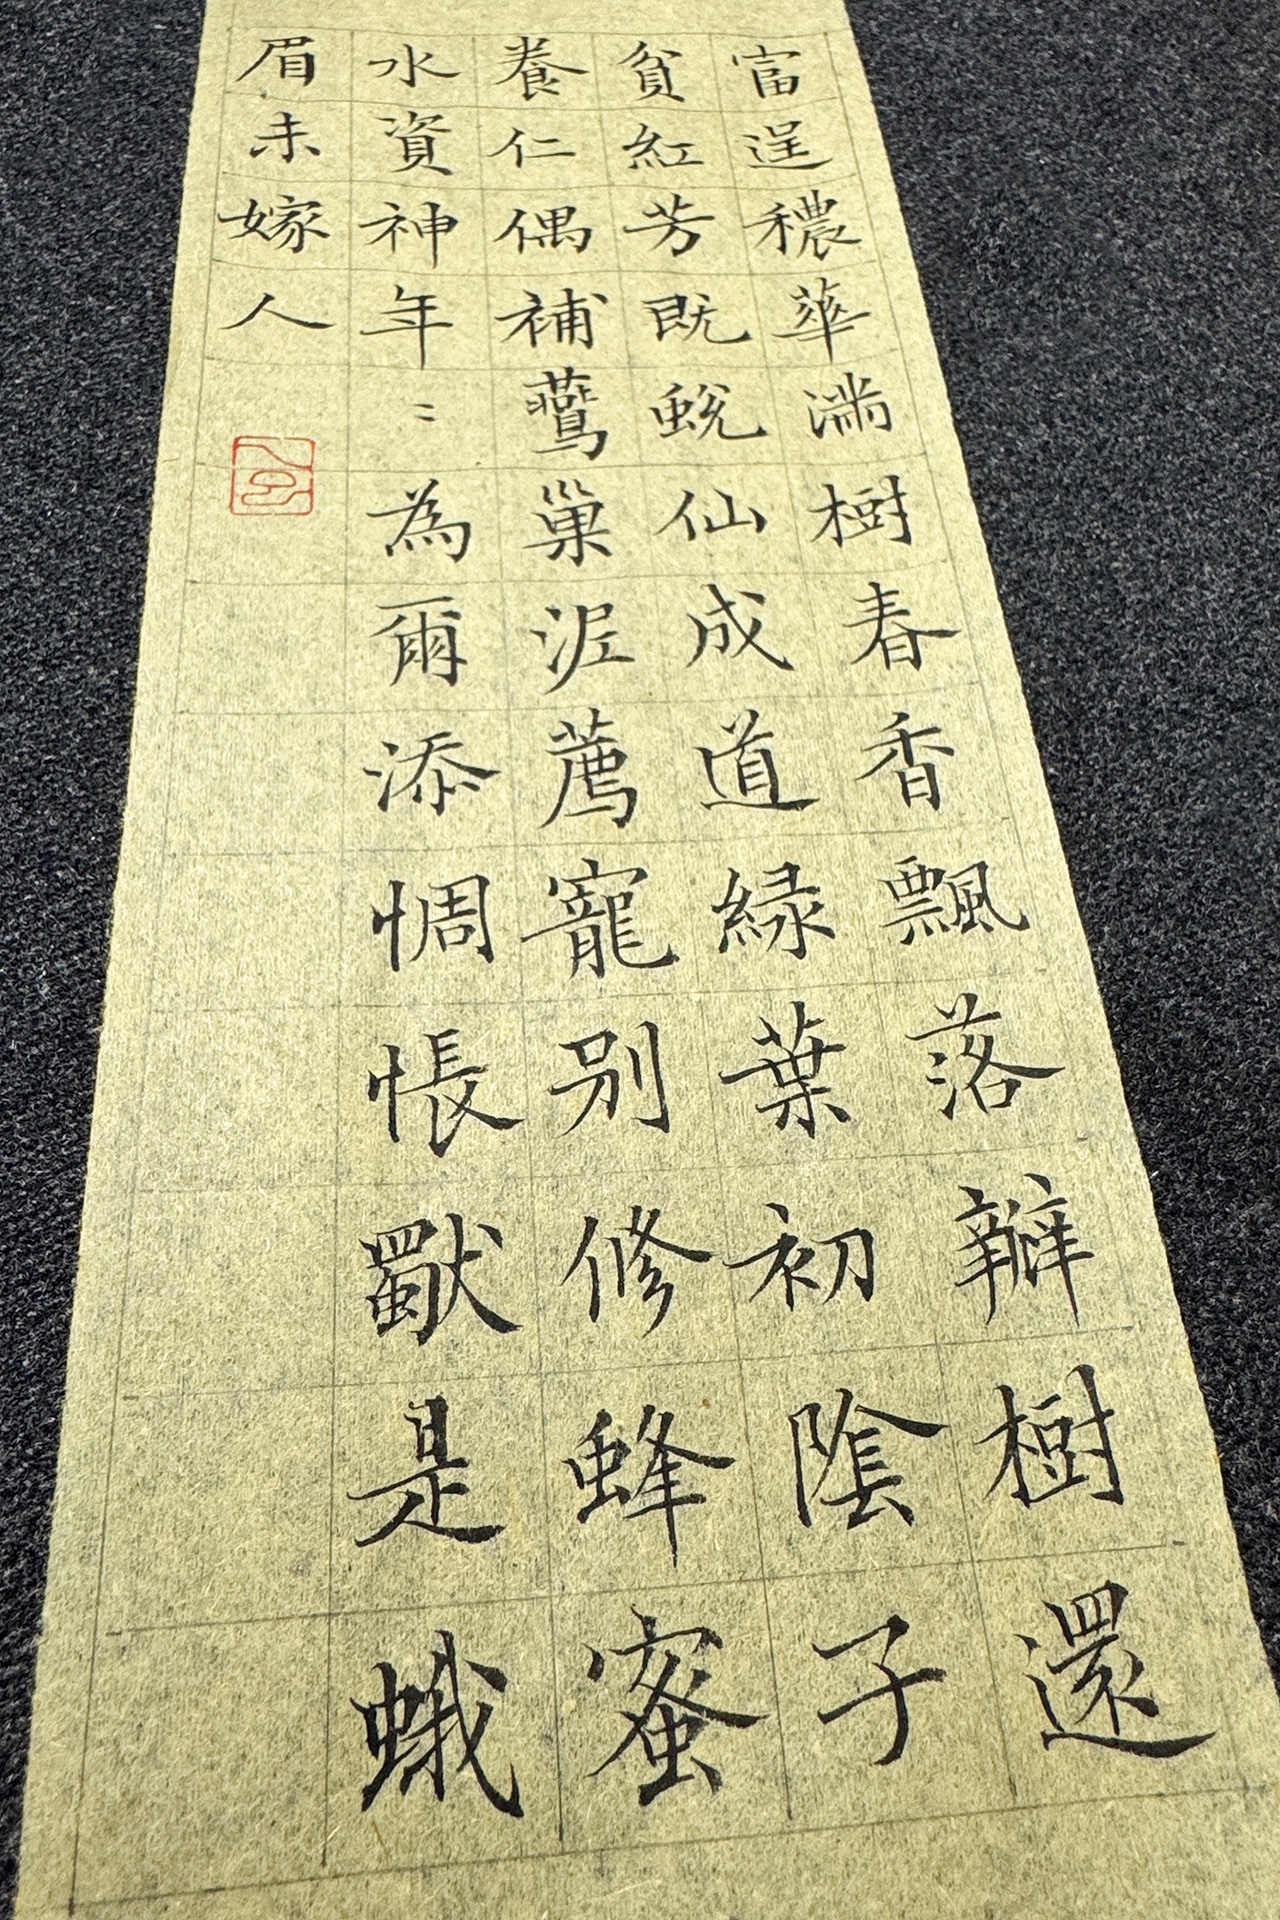 富逞穠華满樹春香飄落瓣樹還
貧紅芳既蛻仙成道緑葉初陰子
養仁偶補鷰巢泥薦寵别修蜂蜜
水資神年〻為爾添惆悵獸是蛾
眉未嫁人